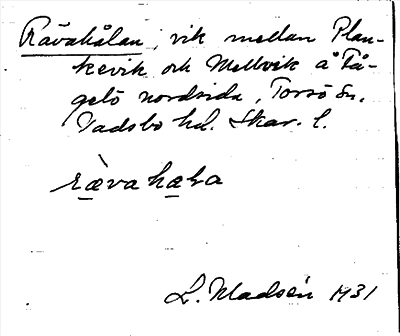 Rävahålan, vik mellan Plan-
kevik och Mellvik å Få-
gelö nordsida, Torsö sn,
Vadsbo hd. Skar. l.
rævahaɫa
L. Madsén 1931